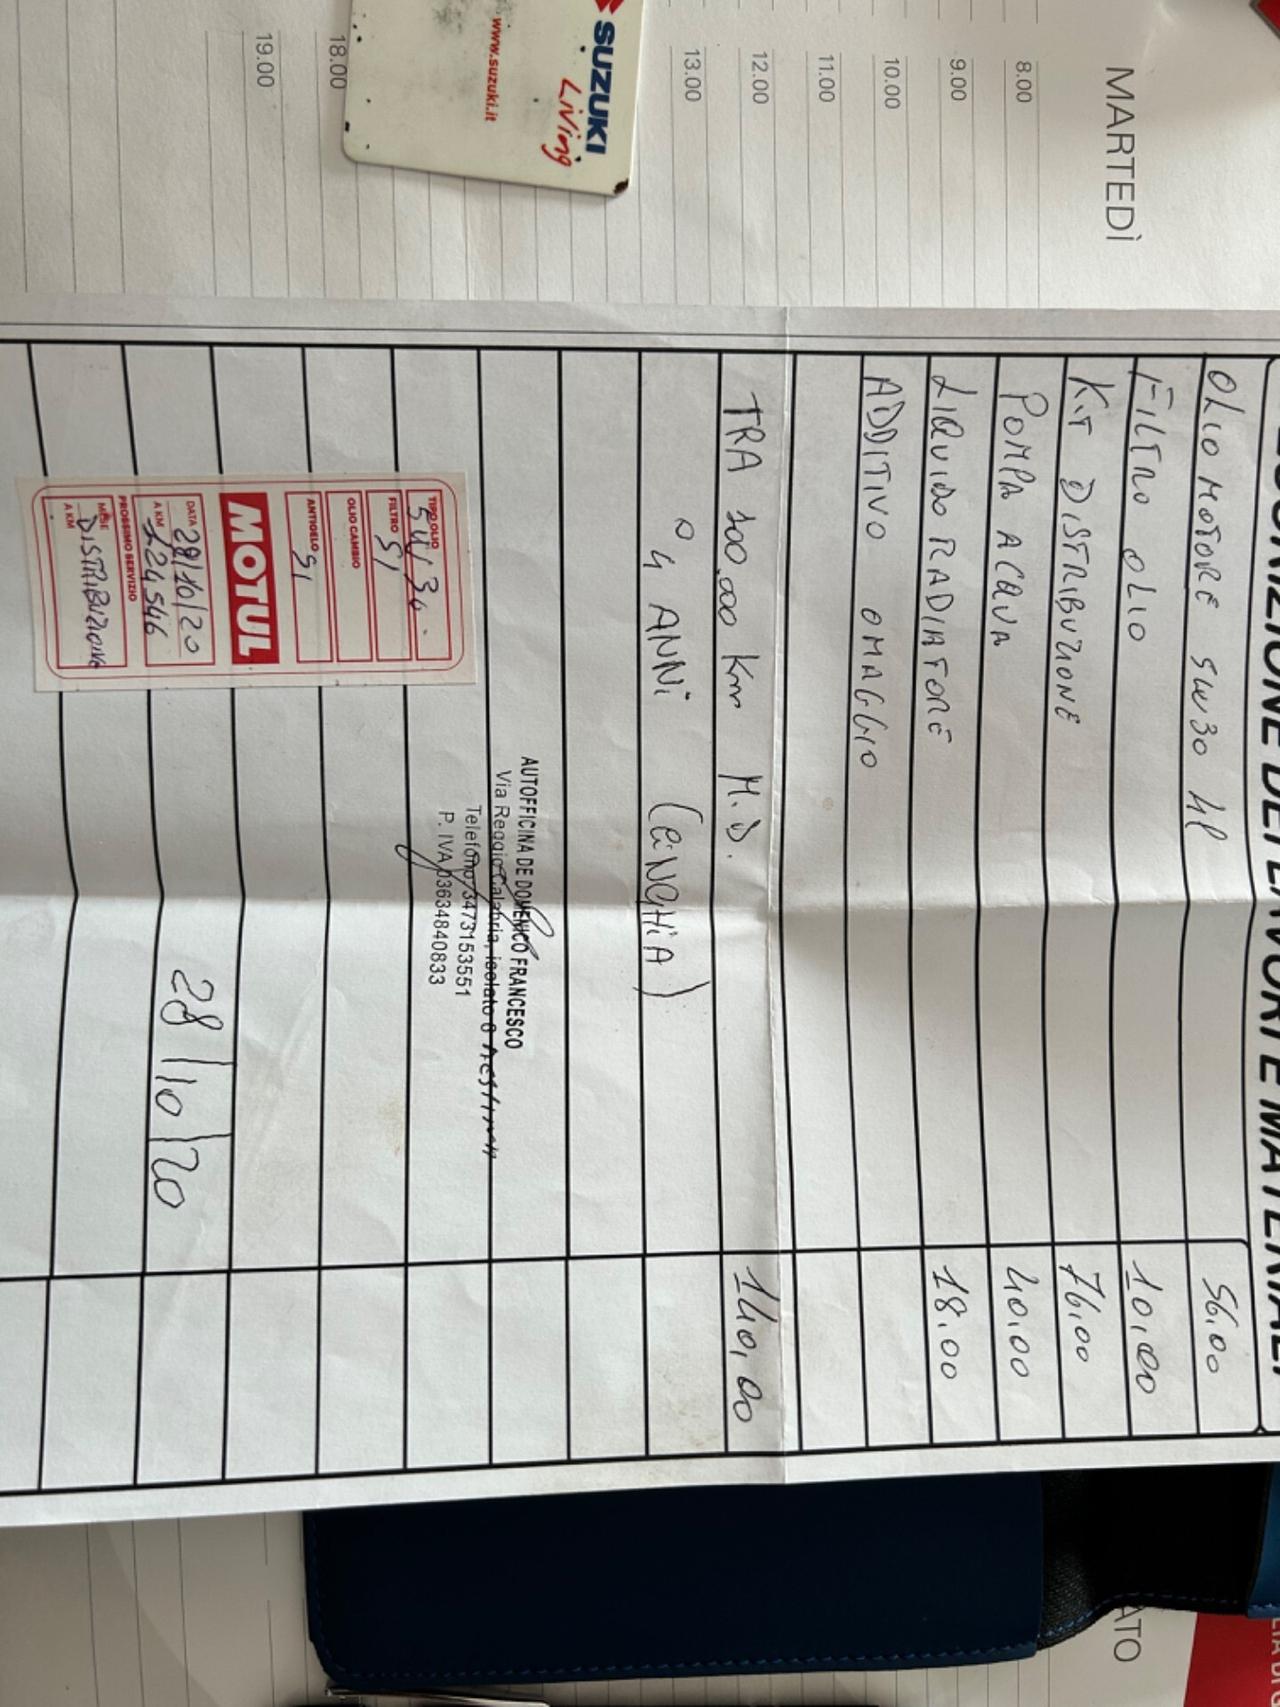 MARTEDÌ
8.00
9.00
10.00
11.00
12.00
13.00
18.00
19.00
SUZUKI
Living
www.suzuki.it
DEI LAVORI E MATERIALI
OLIO MOTORE 5W30 4l 56,00
FILTRO OLIO 10,00
KiT DISTRIBUZIONE 76,00
POMPA ACQUA 40,00
LIQUIDO RADIATORE 18.00
ADDITIVO OMAGGIO
TRA 100.000 Km M.D. 140,00
O 4 ANNi (CiNGHiA)
AUTOFFICINA DE DOMENICO FRANCESCO
Via Reggio Calabria, isolato 8
Telefono 3473153551
P. IVA 03634840833
TIPO OLIO 5W30
FILTRO SI
OLIO CAMBIO
ANTIGELO SI
MOTUL
DATA 28/10/20
A KM 124546
PROSSIMO SERVIZIO
MESE DISTRIBUZIONE
A KM
28/10/20
ATO